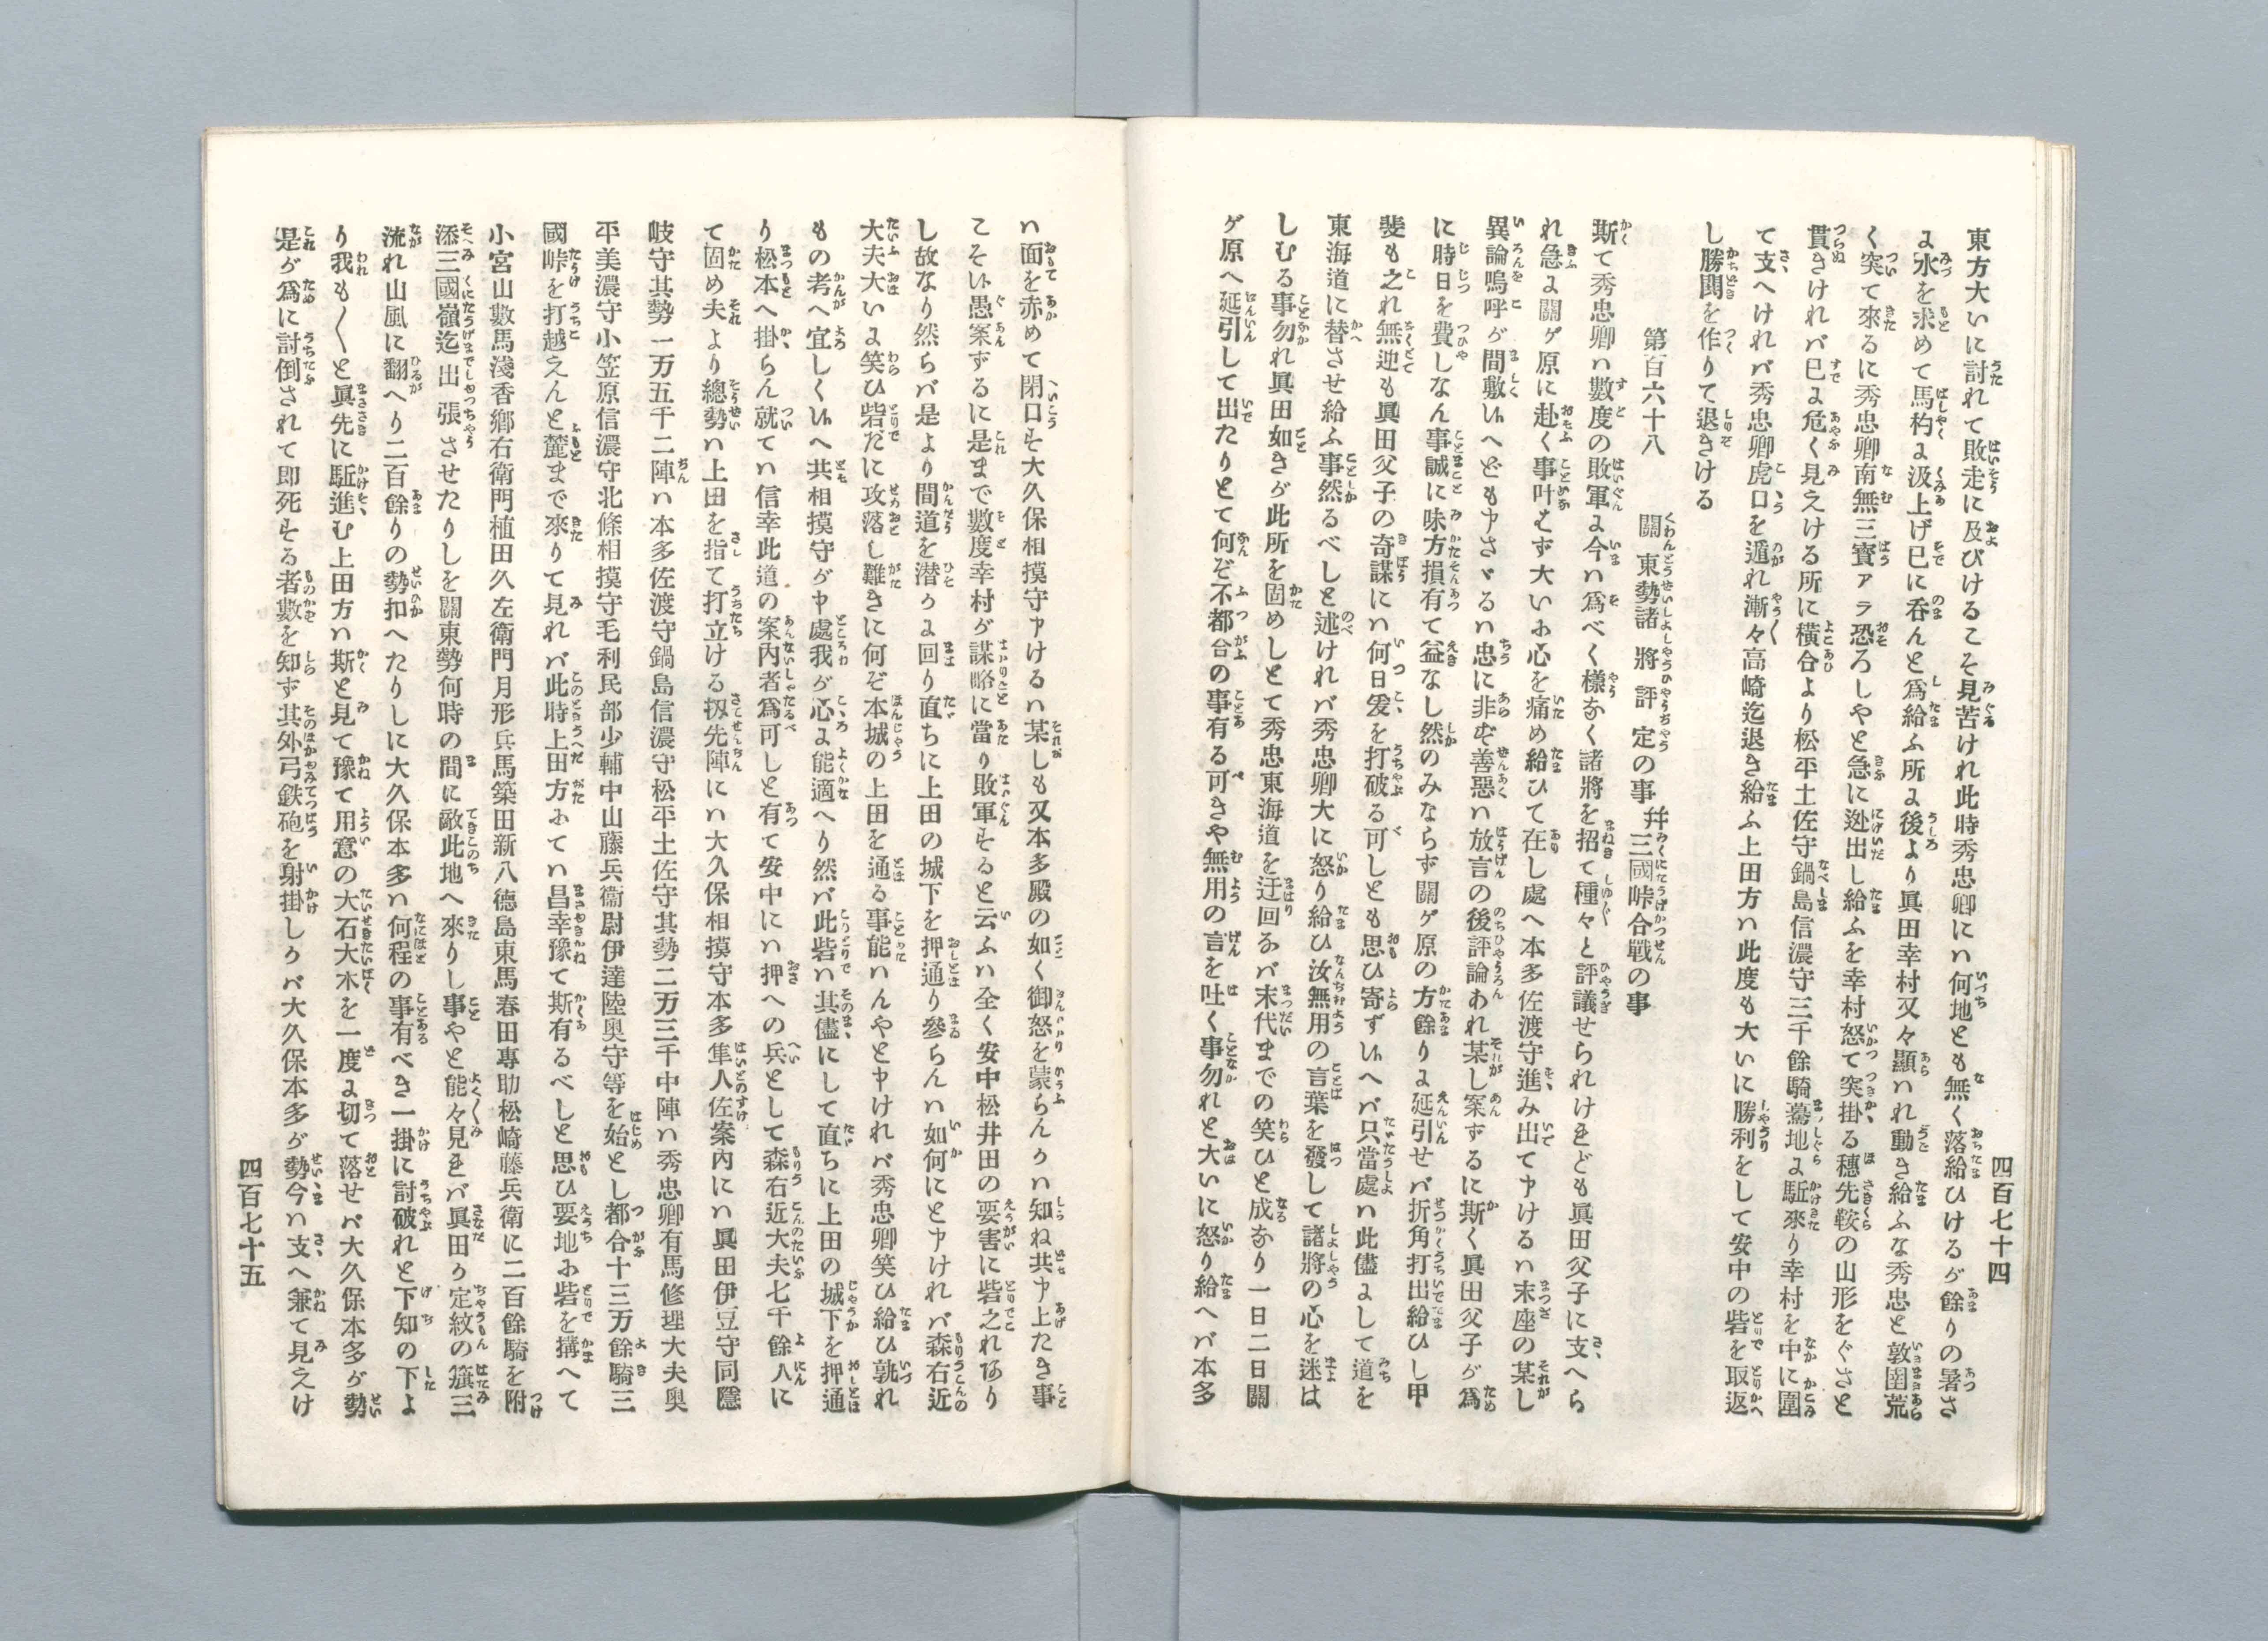 四百七十四
東方大いに討れて敗走に及びけるこそ見苦けれ此時秀忠卿にハ何地とも無く落給ひけるが餘りの暑さ
に水を求めて馬杓に汲上げ已に呑んと爲給ふ所に後より眞田幸村又々顯ハれ動き給ふな秀忠と敦圉荒
く突て來るに秀忠卿南無三寳アラ恐ろしやと急に迯出し給ふを幸村怒て突掛る穗先鞍の山形をぐさと
貫きけれバ已に危く見えける所に横合より松平土佐守鍋島信濃守三千餘騎驀地に駈來り幸村を中に圍
て支へけれバ秀忠卿虎口を遁れ漸々高崎迄退き給ふ上田方ハ此度も大いに勝利をして安中の砦を取返
し勝鬨を作りて退きける
第百六十八　關東勢諸將評定の事并三國峠合戰の事
斯て秀忠卿ハ數度の敗軍に今ハ爲べく樣なく諸將を招て種々と評議せられけれども眞田父子に支へら
れ急に關ヶ原に赴く事叶はず大いに心を痛め給ひて在し處へ本多佐渡守進み出て申けるハ末座の某し
異論嗚呼が間敷いへども申さゞるハ忠に非ず善惡ハ放言の後評論あれ某し案ずるに斯く眞田父子が爲
に時日を費しなん事誠に味方損有て益なし然のみならず關ヶ原の方餘りに延引せバ折角打出給ひし甲
斐も之れ無迚も眞田父子の奇謀にハ何日爰を打破る可しとも思ひ寄ずいへバ只當處ハ此儘にして道を
東海道に替させ給ふ事然るべしと述けれバ秀忠卿大に怒り給ひ汝無用の言葉を發して諸將の心を迷は
しむる事勿れ眞田如きが此所を固めしとて秀忠東海道を迂回るバ末代までの笑ひと成なり一日二日關
ヶ原へ延引して出たりとて何ぞ不都合の事有る可きや無用の言を吐く事勿れと大いに怒り給へバ本多
ハ面を赤めて閉口す大久保相摸守申けるハ某しも又本多殿の如く御怒を蒙らんかハ知ね共申上たき事
こそい愚案ずるに是まで數度幸村が謀略に當り敗軍すると云ふハ全く安中松井田の要害に砦之れあり
し故なり然らバ是より間道を潜かに回り直ちに上田の城下を押通り參らんハ如何にと申けれバ森右近
大夫大いに笑ひ砦だに攻落し難きに何ぞ本城の上田を通る事能ハんやと申けれバ秀忠卿笑ひ給ひ孰れ
もの考へ宜しくいへ共相摸守が申處我が心に能適へり然バ此砦ハ其儘にして直ちに上田の城下を押通
り松本へ掛らん就てハ信幸此道の案内者爲可しと有て安中にハ押への兵として森右近大夫七千餘人に
て固め夫より總勢ハ上田を指て打立ける扨先陣にハ大久保相摸守本多隼人佐案内にハ眞田伊豆守同隱
岐守其勢一万五千二陣ハ本多佐渡守鍋島信濃守松平土佐守其勢二万三千中陣ハ秀忠卿有馬修理大夫奥
平美濃守小笠原信濃守北條相摸守毛利民部少輔中山藤兵衞尉伊達陸奥守等を始とし都合十三万餘騎三
國峠を打越えんと麓まで來りて見れバ此時上田方にてハ昌幸豫て斯有るべしと思ひ要地に砦を搆へて
小宮山數馬淺香郷右衛門植田久左衛門月形兵馬築田新八德島東馬春田專助松崎藤兵衛に二百餘騎を附
添三國嶺迄出張させたりしを關東勢何時の間に敵此地へ來りし事やと能々見れバ眞田か定紋の籏三
流れ山風に翻へり二百餘りの勢扣へたりしに大久保本多ハ何程の事有べき一掛に討破れと下知の下よ
り我も〱と眞先に駈進む上田方ハ斯と見て豫て用意の大石大木を一度に切て落せバ大久保本多が勢
是が爲に討倒されて即死する者數を知ず其外弓鉄砲を射掛しかバ大久保本多が勢今ハ支へ兼て見えけ
四百七十五